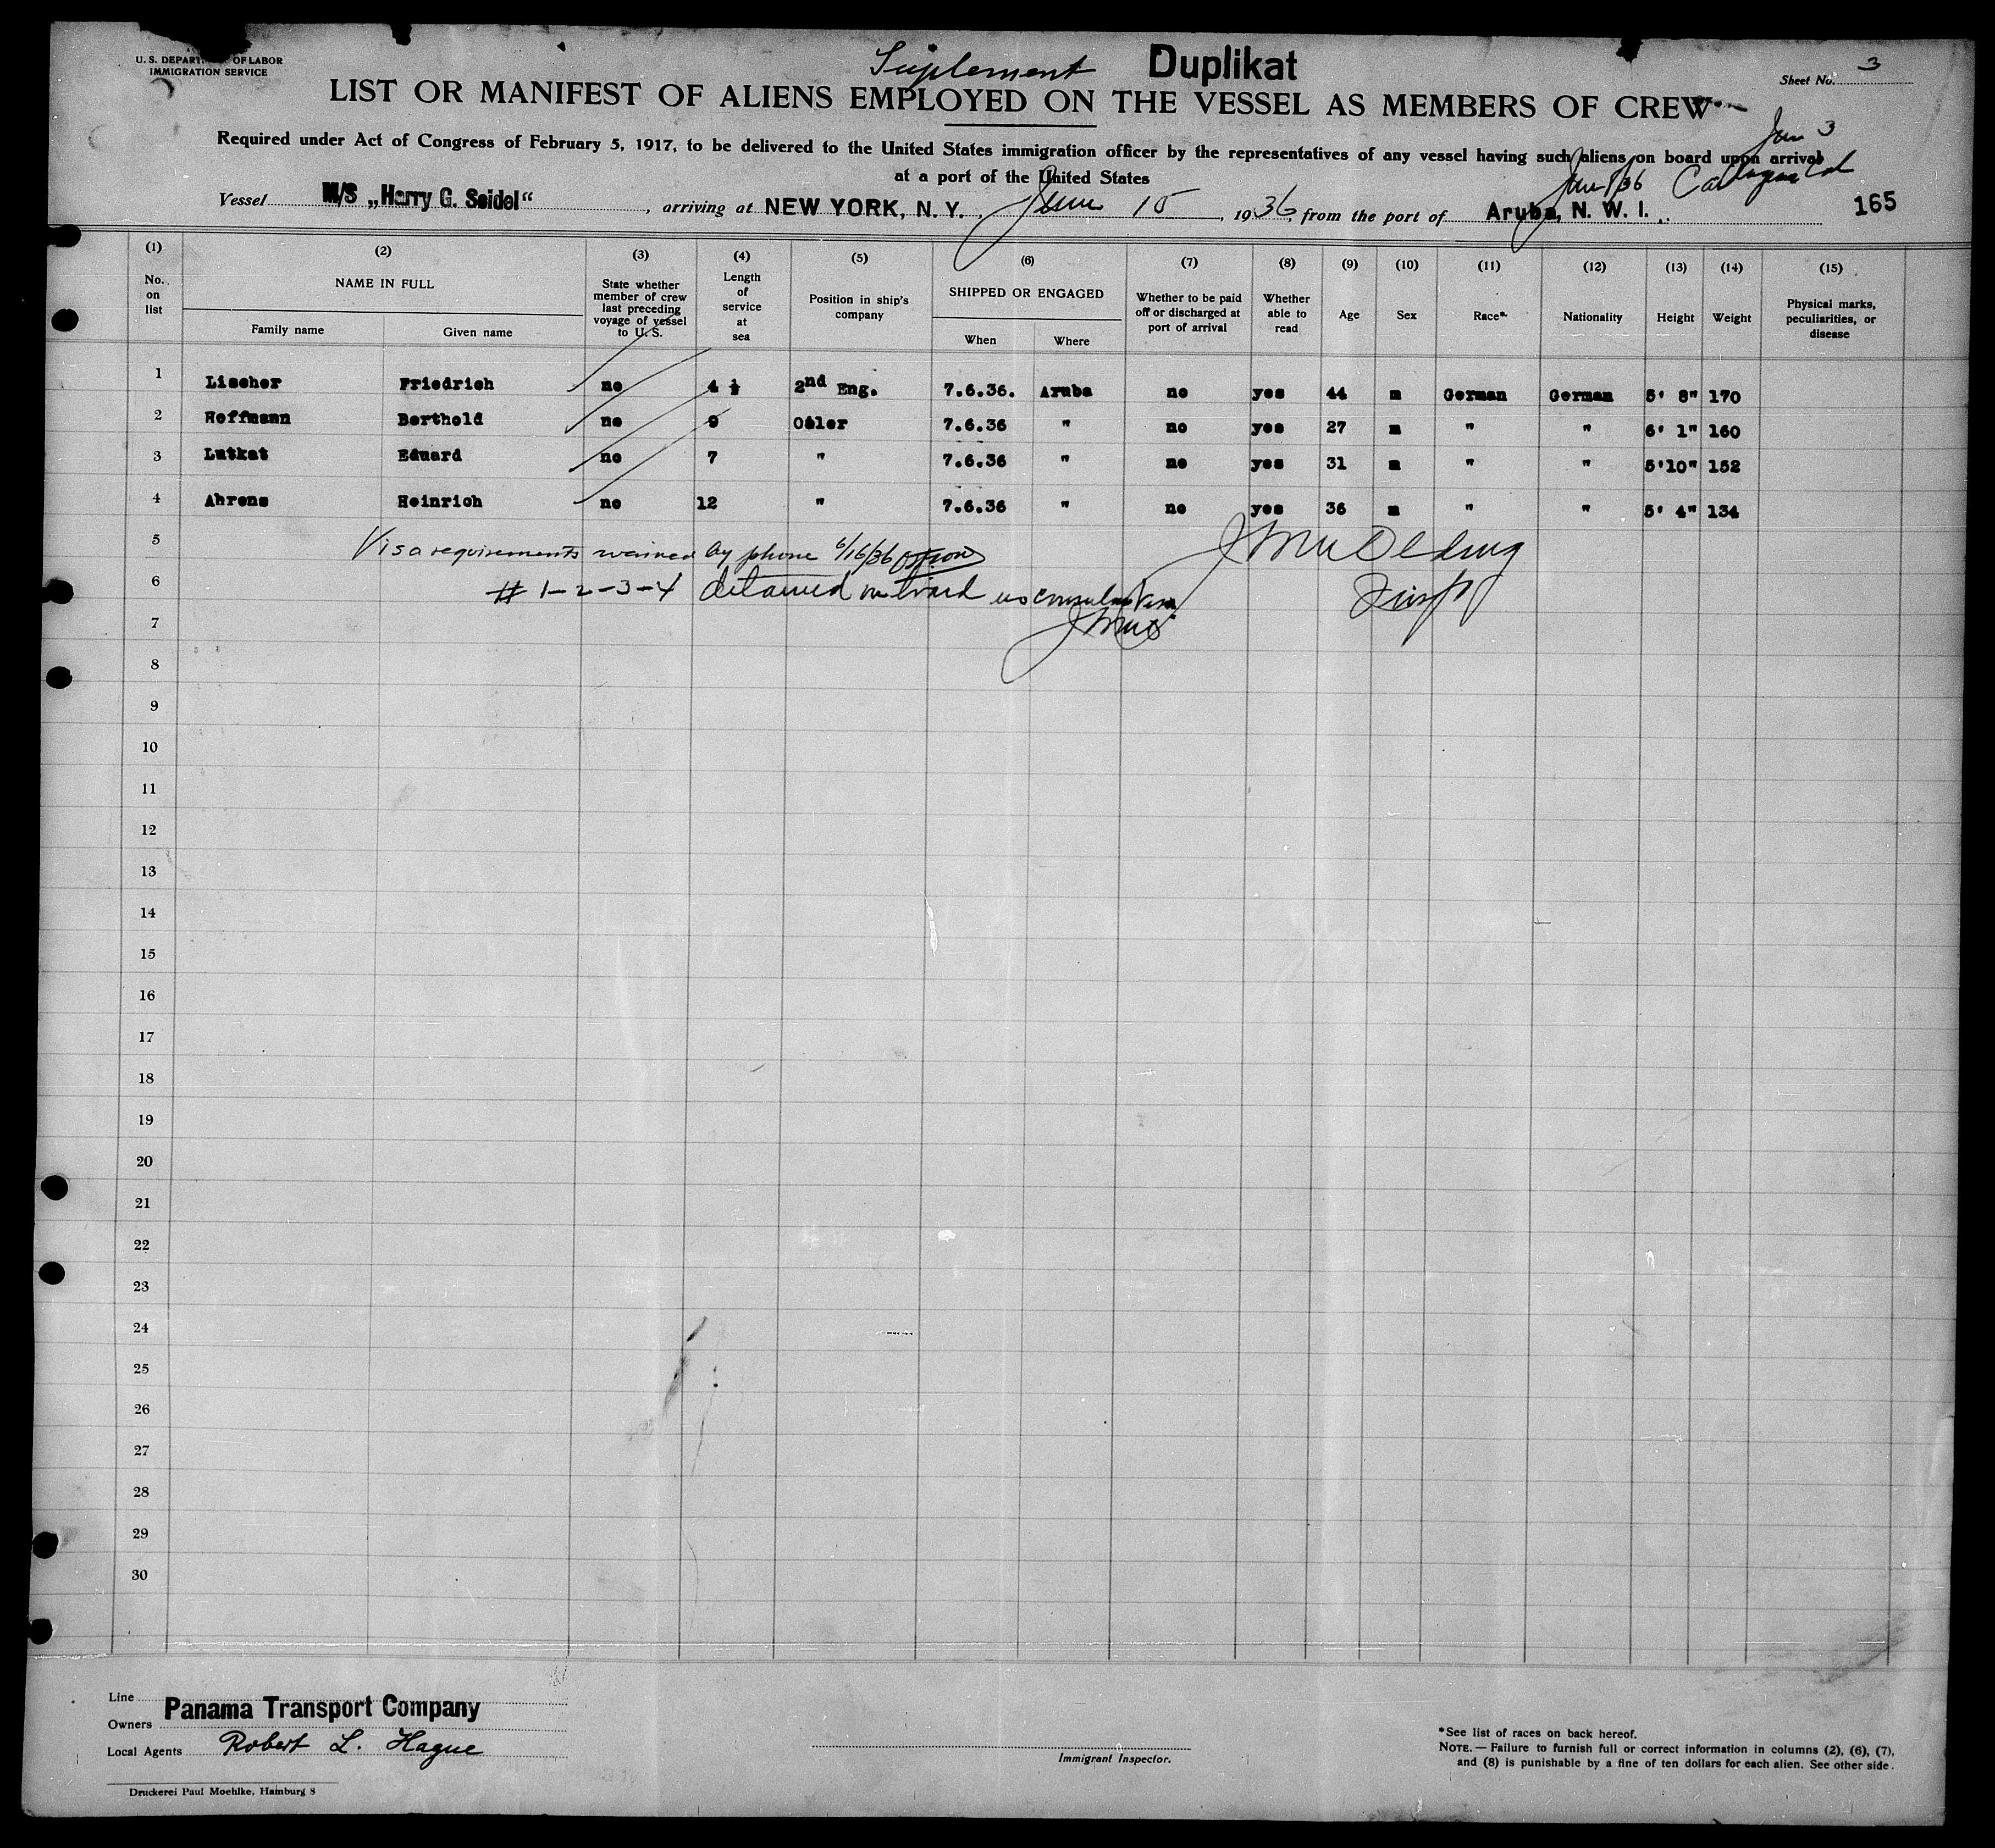 U. S. DEPARTMENT OF LABOR
IMMIGRATION SERVICE
Suplement Duplikat
Sheet No. 3
LIST OR MANIFEST OF ALIENS EMPLOYED ON THE VESSEL AS MEMBERS OF CREW
Required under Act of Congress of February 5, 1917, to be delivered to the United States immigration officer by the representatives of any vessel having such aliens on board upon arrival
at a port of the United States
Vessel M/S „Harry G. Seidel“, arriving at NEW YORK, N. Y. June 15, 1936, from the port of Aruba, N. W. I.
165
(1) (2) (3) (4) (5) (6) (7) (8) (9) (10) (11) (12) (13) (14) (15)
No. on list
NAME IN FULL
Family name Given name
State whether member of crew last preceding voyage of vessel to U. S.
Length of service at sea
Position in ship's company
SHIPPED OR ENGAGED
When Where
Whether to be paid off or discharged at port of arrival
Whether able to read
Age
Sex
Race*
Nationality
Height
Weight
Physical marks, peculiarities, or disease
1 Lischer Friedrich no 4 ½ 2nd Eng. 7.6.36. Aruba no yes 44 m German German 5' 8" 170
2 Hoffmann Berthold no 9 Oiler 7.6.36 " no yes 27 m " " 6' 1" 160
3 Lutkat Eduard no 7 " 7.6.36 " no yes 31 m " " 5'10" 152
4 Ahrens Heinrich no 12 " 7.6.36 " no yes 36 m " " 5' 4" 134
5 Visa requirements waived by phone 6/16/36
6 # 1-2-3-4 detained on board no consular visa
7
8
9
10
11
12
13
14
15
16
17
18
19
20
21
22
23
24
25
26
27
28
29
30
Line
Owners Panama Transport Company
Local Agents Robert L. Hague
Immigrant Inspector.
*See list of races on back hereof.
NOTE. — Failure to furnish full or correct information in columns (2), (6), (7),
and (8) is punishable by a fine of ten dollars for each alien. See other side.
Druckerei Paul Moehlke, Hamburg 8